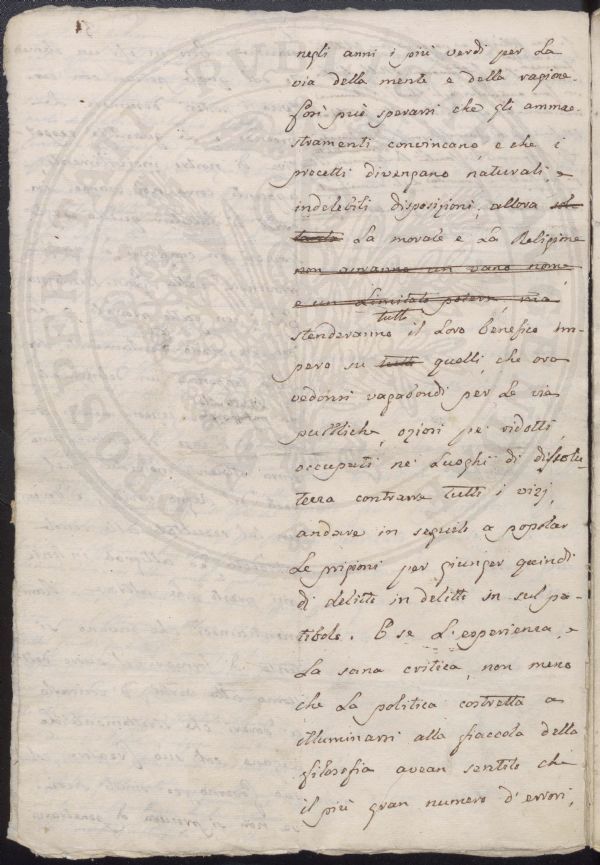 negli anni i più verdi per la
via della mente e della ragione
può sperarsi che gli ammae-
stramenti convincano, e che i
precetti divengano naturali, e
indelebili disposizioni, allora sol-
tanto la morale e la Religione
non avranno un vano nome
e un limitato potere, ma
tutto
stenderanno il loro benefico im-
pero su tutti quelli, che ora
vedonsi vagabondi per le vie
pubbliche, oziosi pe' ridotti,
occupati ne' luoghi di dissolu-
tezza contrarre tutti i vizj,
andare in seguito a popolar
le prigioni per giunger quindi
di delitto in delitto in sul pa-
tibolo. E se l'esperienza, e
la sana critica, non meno
che la politica costretta a
illuminarsi alla fiaccola della
filosofia avean sentito che
il più gran numero d'errori,